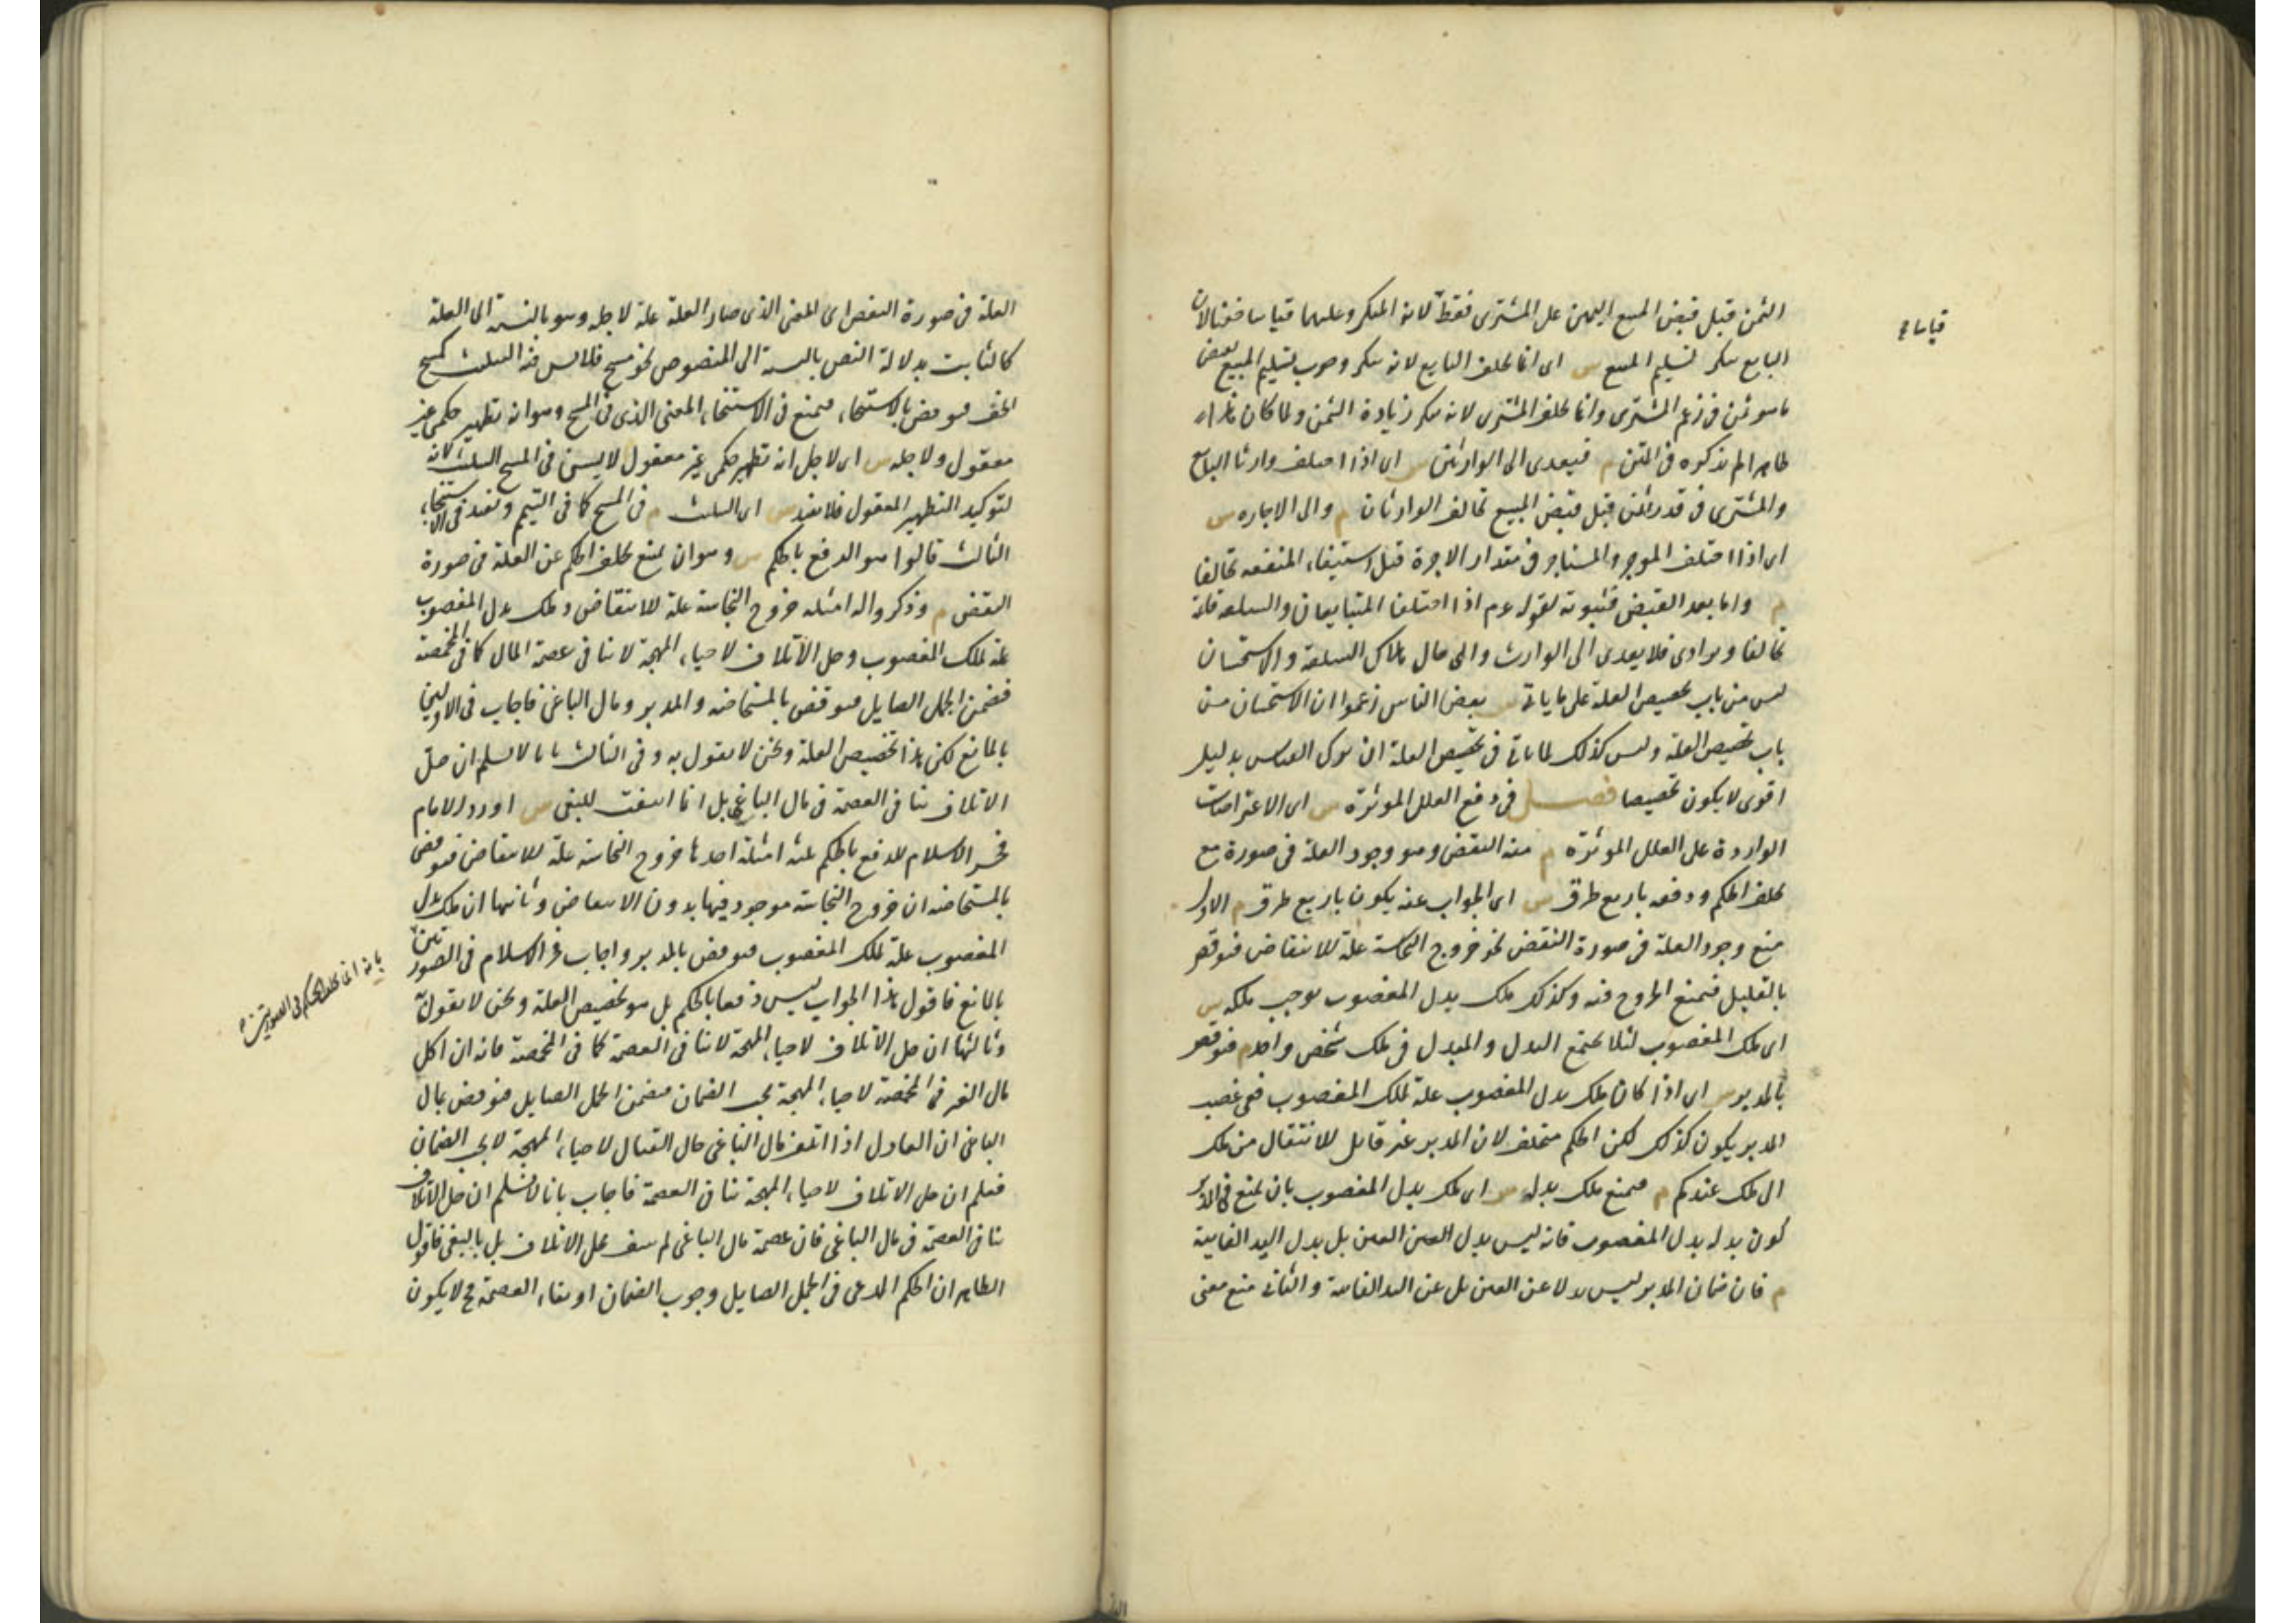 الثمن قبل قبض المبيع اليمين على المشترى فقط لانه المنكر وعليهما قياسا خفيا لان
البايع ينكر تسليم المبيع س اى انما يحلف البايع لانه ينكر وجوب تسليم المبيع بقبض
ما هو ثمن فى زعم المشترى وانما يحلف المشترى لانه ينكر زيادة الثمن ولما كان هذا
ظاهرا لم يذكره فى المتن م فيعدى الى الوارثين س اى اذا اختلف وارثا البايع
والمشترى فى قدر الثمن قبل قبض المبيع تحالف الوارثان م والى الاجاره س
اى اذا اختلف الموجر والمستاجر فى مقدار الاجرة قبل استيفاء المنفعه تحالفا
م واما بعد القبض فثبوته لقوله عم اذا اختلف المتبايعان والسلعه قائمة
تحالفا وترادا فلا يعدى الى الوارث والى حال هلاك السلعة والاستحسان
ليس من باب تخصيص العلة على ما ياتى س بعض الناس زعموا ان الاستحسان من
باب تخصيص العلة وليس كذلك لما ياتى فى تخصيص العلة ان ترك القياس بدليل
اقوى لا يكون تخصيصا فصل فى دفع العلل الموثرة س اى الاعتراضات
الواردة على العلل الموثرة م منه النقض وهو وجود العلة فى صورة مع
تخلف الحكم ودفعه باربع طرق س اى الجواب عنه يكون باربع طرق م الاول
منع وجود العلة فى صورة النقض نحو خروج النجاسة علة للانتقاض فنوقض
بالقليل فيمنع الخروج فيه وكذلك ملك بدل المغصوب يوجب ملكه س
اى ملك المغصوب لئلا يجتمع البدل والمبدل فى ملك شخص واحد م فنوقض
بالمدبر س اى اذا كان ملك بدل المغصوب علة لملك المغصوب ففى غصب
المدبر يكون كذلك لكن الحكم متخلف لان المدبر غير قابل للانتقال من ملك
الى ملك عندكم م فيمنع ملك بدله س اى ملك بدل المغصوب بان يمنع فى المدبر
كون بدله بدل المغصوب فانه ليس بدل العين بل بدل اليد الفايتة
م فان ضمان المدبر ليس بدلا عن العين بل عن اليد الفايتة والثانى منع معنى
قياسا
العلة فى صورة النقض اى المعنى الذى صار العلة علة لاجله وهو بالنسبة الى العلة
كالثابت بدلالة النص بالنسبة الى المنصوص نحو مسح فلا يسن فيه التثليث كمسح
الخف فنوقض بالاستنجاء فيمنع فى الاستنجاء المعنى الذى فى المسح وهو انه تطهير حكمى غير
معقول ولاجله س اى لاجل انه تطهير حكمى غير معقول لا يسن فى المسح التثليث لانه
لتوكيد التطهير المعقول فلا يفيد س اى التثليث م فى المسح كما فى التيمم ويفيد فى الاستنجاء
الثالث قالوا هو الدفع بالحكم س وهو ان يمنع تخلف الحكم عن العلة فى صورة
النقض م وذكروا له امثلة خروج النجاسة علة للانتقاض وملك بدل المغصوب
علة لملك المغصوب وحل الاتلاف لاحياء المهجة لا ينافى عصمة المال كما فى المخمصة
فيضمن الجمل الصايل فنوقض بالمستحاضه والمدبر ومال الباغى فاجاب فى الاوليين
بالمانع لكن هذا تخصيص العلة ونحن لا نقول به وفى الثالث بانا لا نسلم ان حل
الاتلاف ينافى العصمة فى مال الباغى بل انما انتفت للبغى س اورد الامام
فخر الاسلام للدفع بالحكم ثلثة امثلة احدها خروج النجاسة علة للانتقاض فنوقض
بالمستحاضه ان خروج النجاسة موجود فيها بدون الانتقاض وثانيها ان ملك بدل
المغصوب علة لملك المغصوب فنوقض بالمدبر واجاب فخر الاسلام فى الصورتين
بالمانع فاقول هذا الجواب ليس دفعا بالحكم بل هو تخصيص العلة ونحن لا نقول به
وثالثها ان حل الاتلاف لاحياء المهجة لا ينافى العصمة كما فى المخمصة فانه ان اكل
مال الغير فى المخمصة لاحياء المهجة يجب الضمان فيضمن الجمل الصايل فنوقض بمال
الباغى ان العادل اذا اتلف مال الباغى حال القتال لاحياء المهجة لا يجب الضمان
فعلم ان حل الاتلاف لاحياء المهجة ينافى العصمة فاجاب بانا لا نسلم ان حل الاتلاف
ينافى العصمة فى مال الباغى فان عصمة مال الباغى لم تنتف بحل الاتلاف بل بالبغى فاقول
الظاهر ان الحكم المدعى فى الجمل الصايل وجوب الضمان او بقاء العصمة ح لا يكون
بانه انما تخلف الحكم فى الصورتين